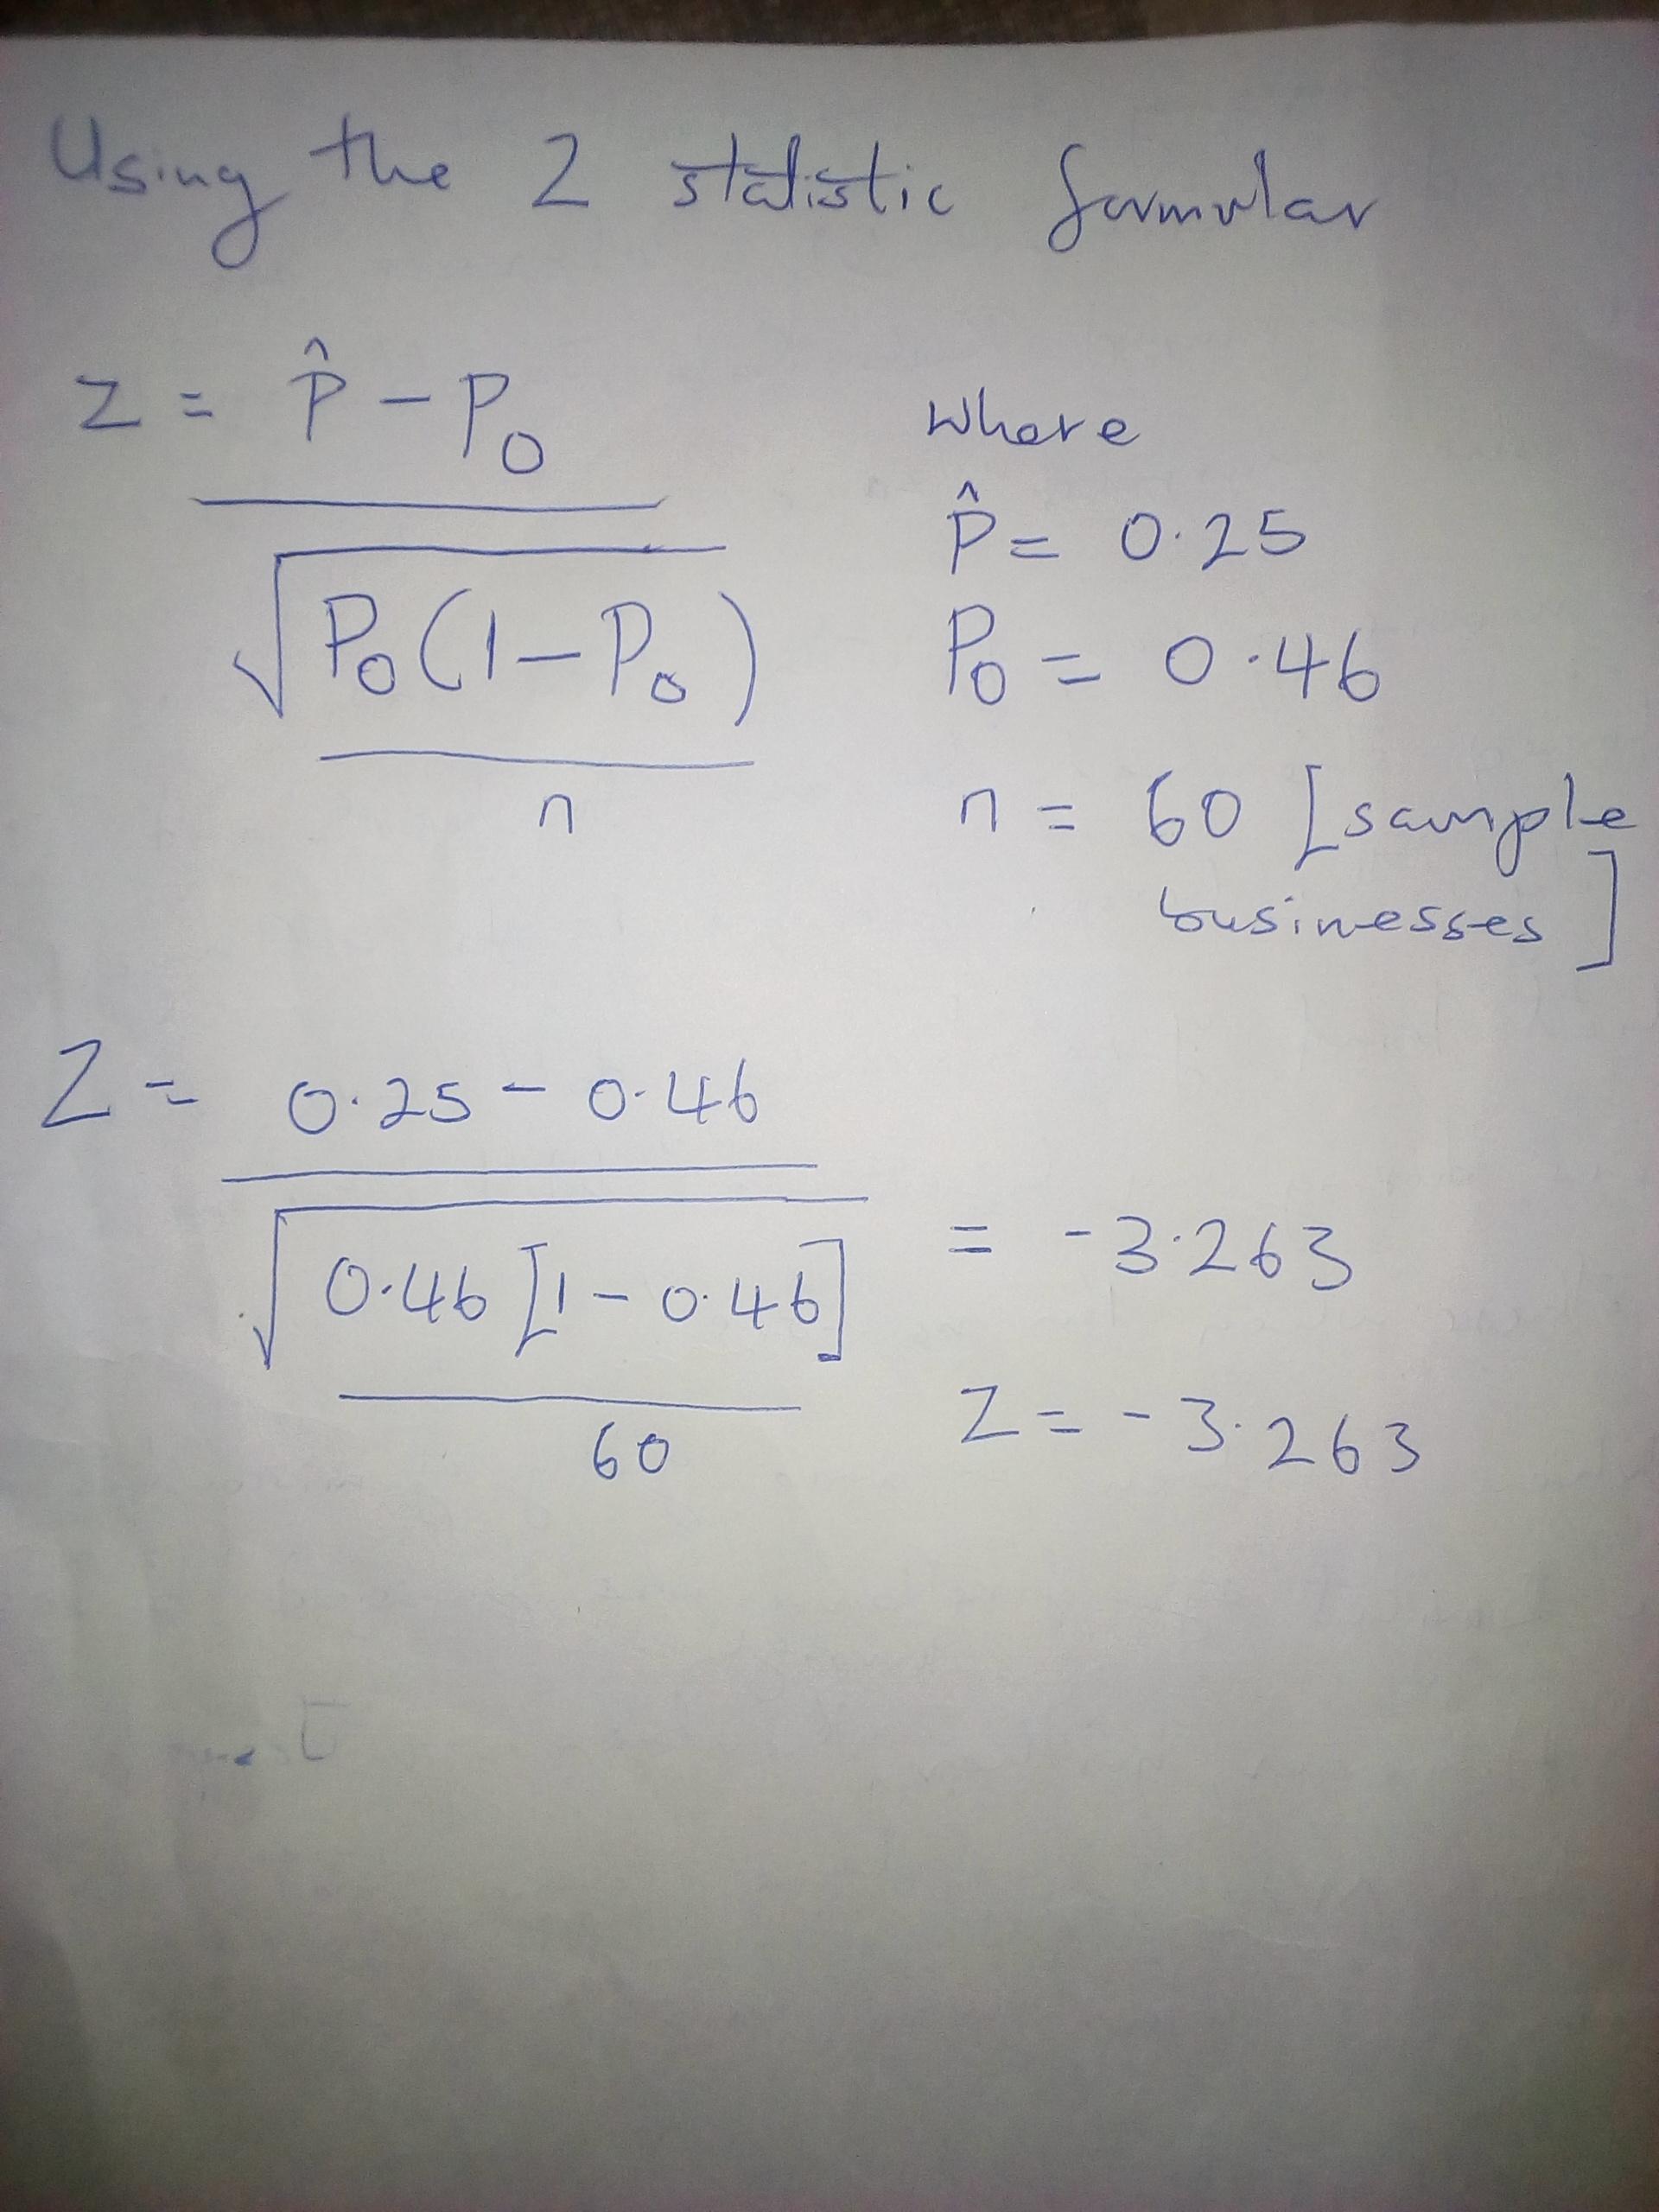 Using the Z statistic formular
Z = P̂ - P₀
√P₀(1-P₀)
n
Where
P̂ = 0.25
P₀ = 0.46
n = 60 [sample
businesses]
Z = 0.25 - 0.46
√0.46[1-0.46]
60
= -3.263
Z = -3.263